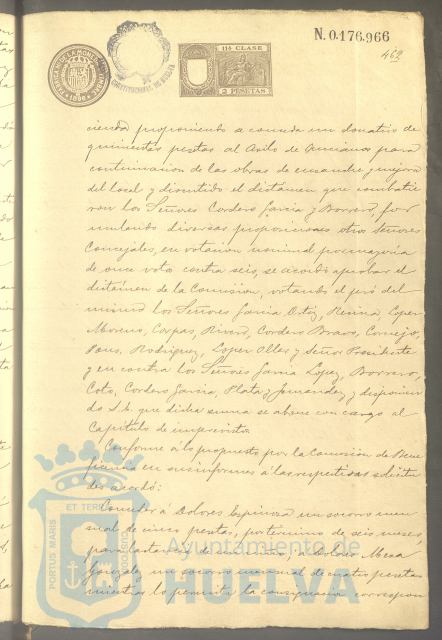 N. 0.176.966
469
11ª CLASE
2 PESETAS
CONSTITUCIONAL DE HUELVA
cienda proponiendo se conceda un donativo de
quinientas pesetas al Asilo de Ancianos para
continuacion de las obras de ensanche y mejora
del local y discutido el dictamen que combatie
ron los Señores Cordero Garcia y Borrero, for
mulando diversas proposiciones otros Señores
Concejales, en votacion nominal por mayoria
de once votos contra seis, se acordó aprobar el
dictámen de la Comision, votando el pró del
mismo los Señores Garcia Ortiz, Reina, Lopez
Moreno, Corpas, Rivero, Cordero Bravo, Cornejo,
Pons, Rodriguez, Lopez Ollez y Señor Presidente
y en contra los Señores Garcia Lopez, Borrero,
Coto, Cordero Garcia, Plata y Fernandez y disponien
do S.S. que dicha suma se abone con cargo al
Capitulo de imprevistos.
Conforme á lo propuesto por la Comision de Bene
ficencia en sus informes á las respectivas solicitu
des acordó:
Conceder á Dolores Espinosa un socorro men
sual de cinco pesetas, por término de seis meses,
para lactancia de un niño; á Dolores Mesa
Gonzalez un socorro mensual de cuatro pesetas
mientras lo permita la consignacion correspon
PORTUS MARIS
ET TERRAE
CUSTODIA
Ayuntamiento de
HUELVA